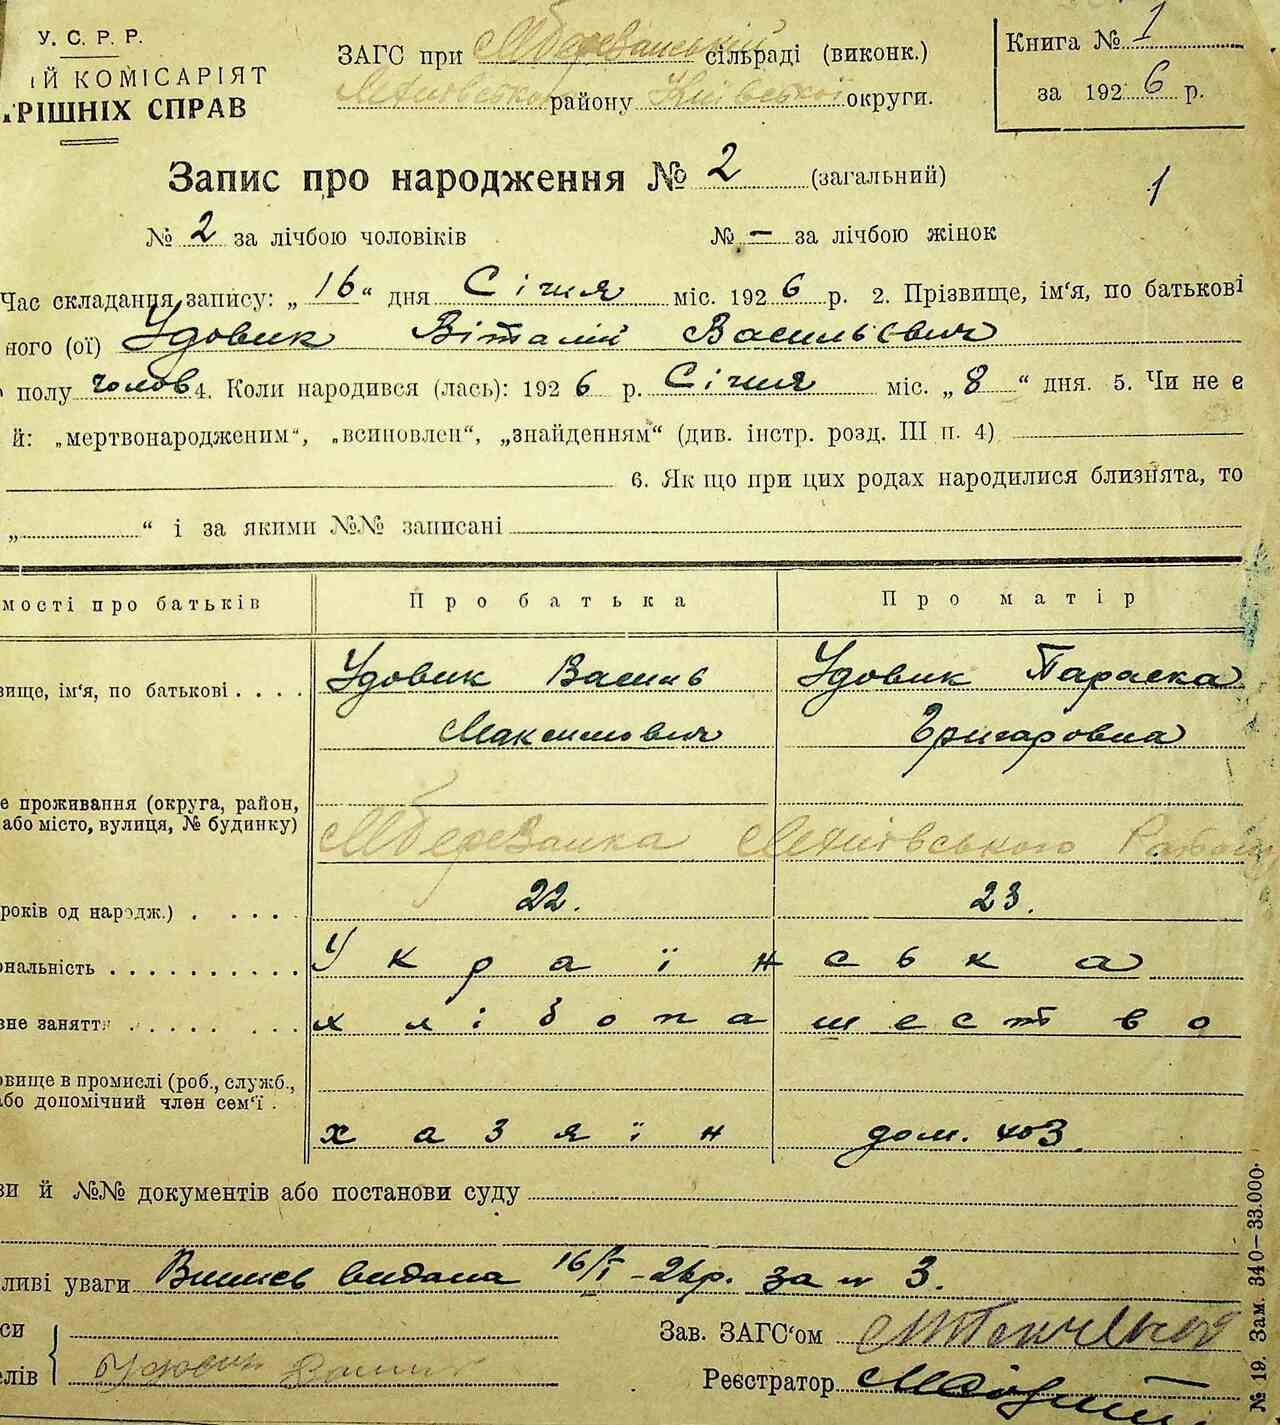 У. С. Р. Р.
ІЙ КОМІСАРІЯТ
РІШНІХ СПРАВ
ЗАГС при М березанській сільраді (виконк.)
району Київської округи.
Книга № 1
за 1926 р.
Запис про народження № 2 (загальний)
1
№ 2 за лічбою чоловіків № — за лічбою жінок
Час складання запису: „16“ дня Січня міс. 1926 р. 2. Прізвище, ім‘я, по батькові
ного (ої) Удовик Віталій Васильєвич
полу чолов 4. Коли народився (лась): 1926 р. Січня міс. „8“ дня. 5. Чи не є
й: „мертвонародженим“, „всиновлен“, „знайденням“ (див. інстр. розд. III п. 4)
6. Як що при цих родах народилися близнята, то
„ “ і за якими №№ записані
мості про батьків Про батька Про матір
вище, ім‘я, по батькові . . . . Удовик Василь Удовик Параска
Максимович Григоровна
е проживання (округа, район,
або місто, вулиця, № будинку) М березанка Району
років од народж.) . . . . . 22. 23.
ональність . . . . . . . . . . Українська
вне заняття . . . . . . . . . хлібопашество
овище в промислі (роб., служб.,
або допомічний член сем‘ї .
хазяїн дом. хоз.
зи й №№ документів або постанови суду
ливі уваги Выпись видана 16/I–26р. за № 3.
си
Зав. ЗАГС‘ом
елів Удовик
Реєстратор
№ 19. Зам. 340—33.000.